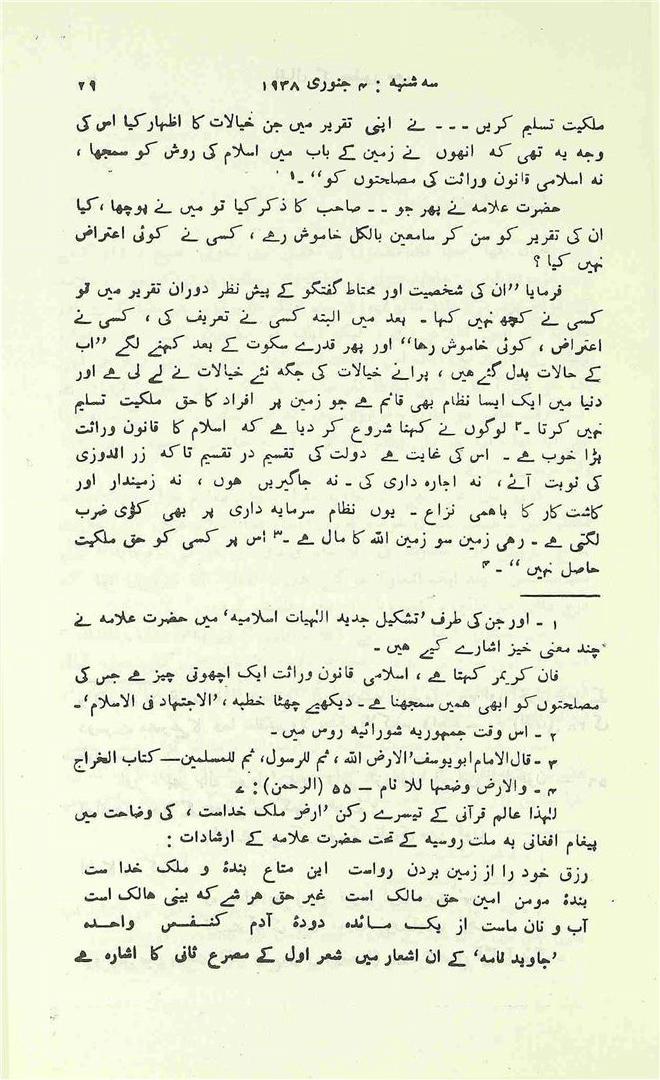 سہ شنبہ : ۴ جنوری ۱۹۳۸ ۲۹
ملکیت تسلیم کریں ۔۔۔ نے اپنی تقریر میں جن خیالات کا اظہار کیا اس کی
وجہ یہ تھی کہ انھوں نے زمین کے باب میں اسلام کی روش کو سمجھا ،
نہ اسلامی قانون وراثت کی مصلحتوں کو“ ۔۱
حضرت علامہ نے پھر جو ۔۔ صاحب کا ذکر کیا تو میں نے پوچھا ، کیا
ان کی تقریر کو سن کر سامعین بالکل خاموش رہے ، کسی نے کوئی اعتراض
نہیں کیا ؟
فرمایا ”ان کی شخصیت اور محتاط گفتگو کے پیش نظر دوران تقریر میں تو
کسی نے کچھ نہیں کہا ۔ بعد میں البتہ کسی نے تعریف کی ، کسی نے
اعتراض ، کوئی خاموش رھا“ اور پھر قدرے سکوت کے بعد کہنے لگے ”اب
کے حالات بدل گئے ھیں ، پرانے خیالات کی جگہ نئے خیالات نے لے لی ہے اور
دنیا میں ایک ایسا نظام بھی قائم ہے جو زمین پر افراد کا حق ملکیت تسلیم
نہیں کرتا ۔۲ لوگوں نے کہنا شروع کر دیا ہے کہ اسلام کا قانون وراثت
بڑا خوب ہے ۔ اس کی غایت ہے دولت کی تقسیم در تقسیم تاکہ زر اندوزی
کی نوبت آئے ، نہ اجارہ داری کی ۔ نہ جاگیریں ھوں ، نہ زمیندار اور
کاشت کار کا باھمی نزاع ۔ یوں نظام سرمایہ داری پر بھی کڑی ضرب
لگتی ہے ۔ رھی زمین سو زمین اللہ کا مال ہے ۔۳ اس پر کسی کو حق ملکیت
حاصل نہیں“ ۔۴
۱ ۔ اور جن کی طرف ’تشکیل جدید الٰہیات اسلامیہ‘ میں حضرت علامہ نے
چند معنی خیز اشارے کیے ھیں ۔
فان کریمر کہتا ہے ، اسلامی قانون وراثت ایک اچھوتی چیز ہے جس کی
مصلحتوں کو ابھی ھمیں سمجھنا ہے ۔ دیکھیے چھٹا خطبہ ، ’الاجتہاد فی الاسلام‘ ۔
۲ ۔ اس وقت جمہوریہ شورائیہ روس میں ۔
۳ ۔ قال الامام ابو یوسف ’الارض اللہ ، ثم للرسول، ثم للمسلمین — کتاب الخراج
۴ ۔ والارض وضعہا للا نام — ۵۵ (الرحمن) : ۷
لہٰذا عالم قرآنی کے تیسرے رکن ’ارض ملک خداست ، کی وضاحت میں
پیغام افغانی بہ ملت روسیہ کے تحت حضرت علامہ کے ارشادات :
رزق خود را از زمین بردن رواست این متاع بندۂ و ملک خدا ست
بندۂ مومن امین حق مالک است غیر حق ھر شے کہ بینی ھالک است
آب و نان ماست از یک مائدہ دودۂ آدم کنفس واحدہ
’جاوید نامہ‘ کے ان اشعار میں شعر اول کے مصرع ثانی کا اشارہ ہے